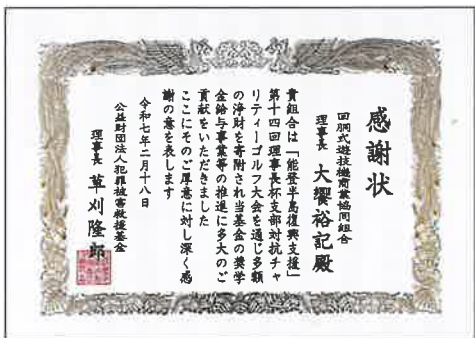 感謝状
回胴式遊技機商業協同組合
理事長 大饗裕記殿
貴組合は「能登半島復興支援」
第十四回理事長杯支部対抗チャ
リティーゴルフ大会を通じ多額
の浄財を寄附され当基金の奨学
金給与事業等の推進に多大のご
貢献をいただきました
ここにそのご厚意に対し深く感
謝の意を表します
令和七年二月十八日
公益財団法人犯罪被害救援基金
理事長 草刈隆郎